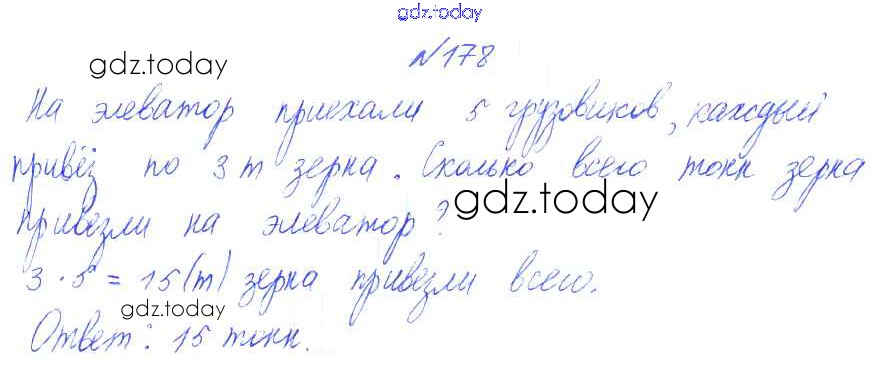 gdz.today
№178
gdz.today
На элеватор приехали 5 грузовиков, каждый
привёз по 3 т зерна. Сколько всего тонн зерна
gdz.today
привезли на элеватор?
3 · 5 = 15 (т) зерна привезли всего.
gdz.today
Ответ: 15 тонн.